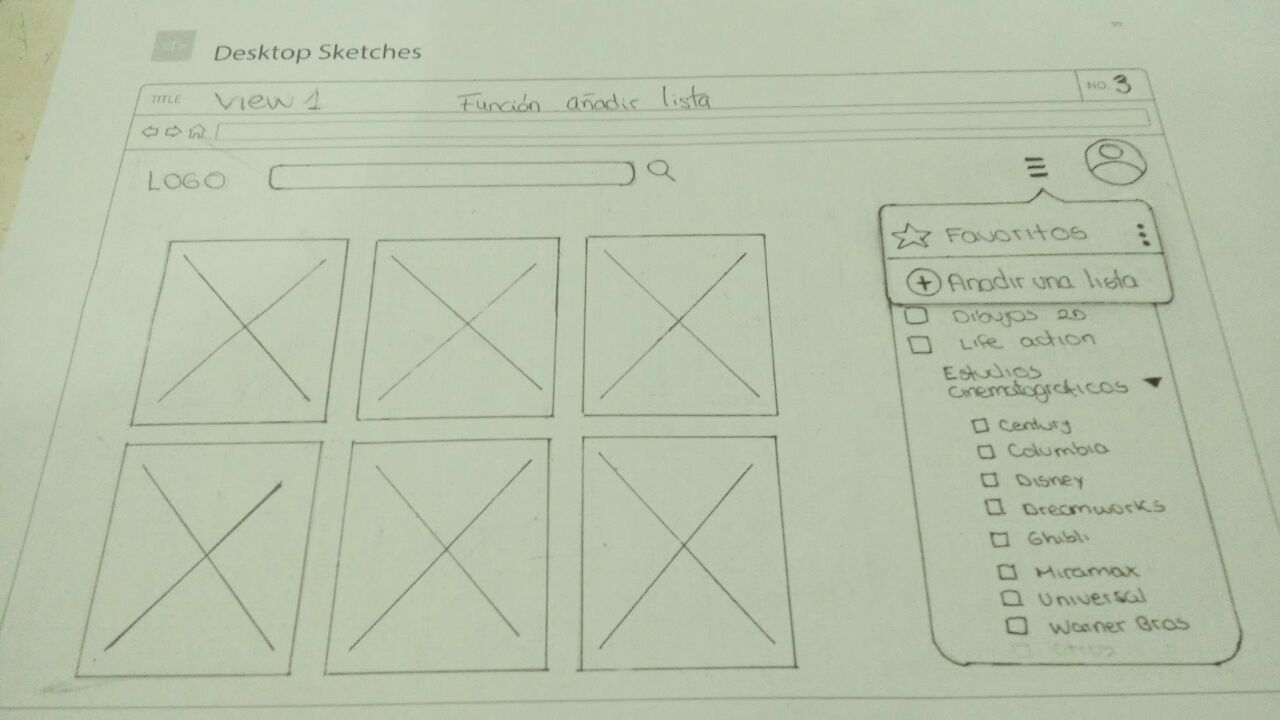 Desktop Sketches
TITLE View 1 Función añadir lista NO. 3
LOGO
Favoritos
Añadir una lista
Dibujos 2D
Life action
Estudios
cinematográficos
Century
Columbia
Disney
Dreamworks
Ghibli
Miramax
Universal
Warner Bros
Otros